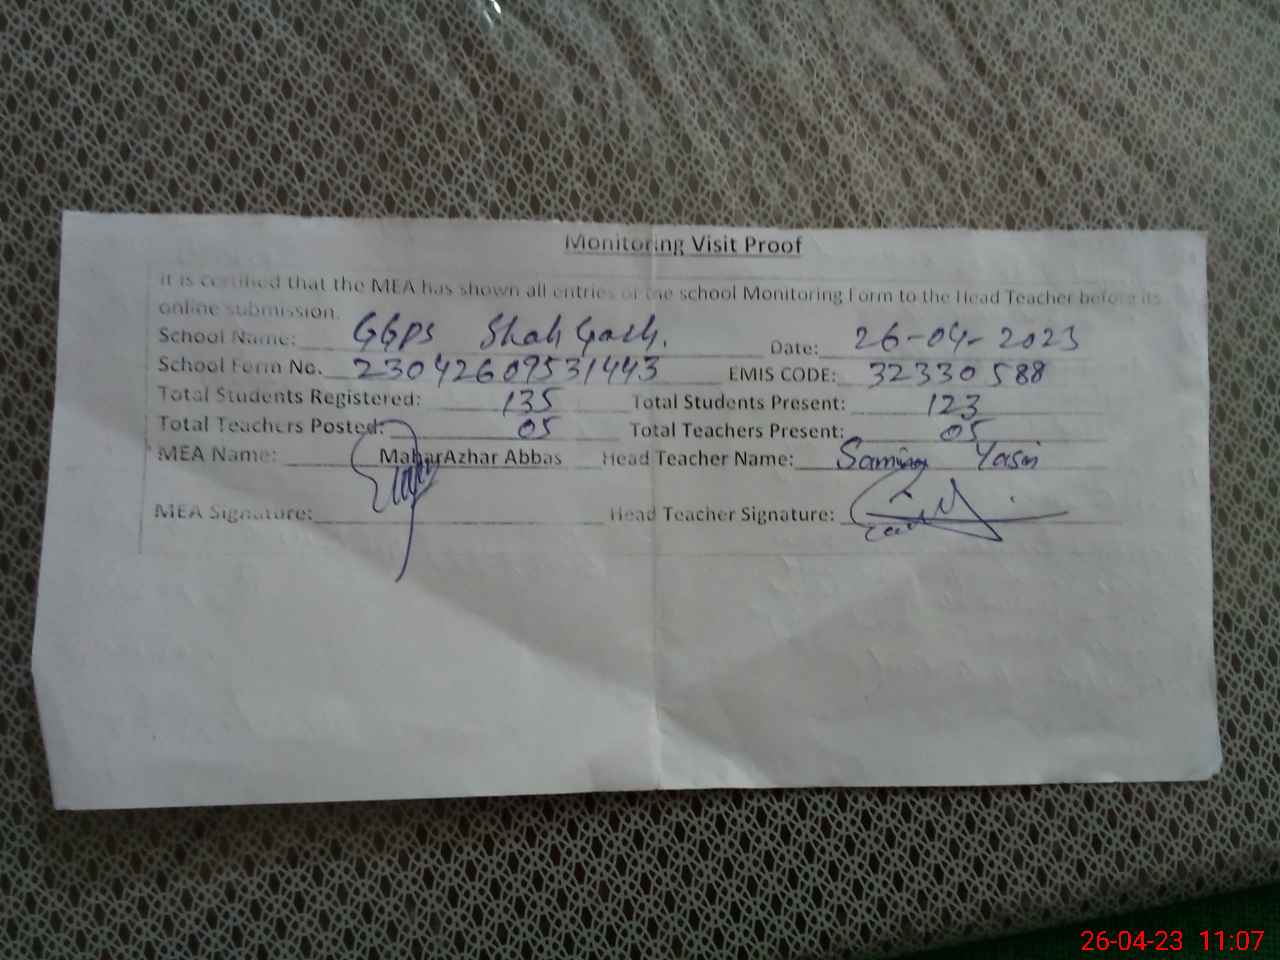 Monitoring Visit Proof
It is certified that the MEA has shown all entries of the school Monitoring Form to the Head Teacher before its
online submission.
School Name: GGPS Shah Garh. Date: 26-04-2023
School Form No. 23042609531443 EMIS CODE: 32330588
Total Students Registered: 135 Total Students Present: 123
Total Teachers Posted: 05 Total Teachers Present: 05
MEA Name: MaharAzhar Abbas Head Teacher Name: Yasin
MEA Signature: Head Teacher Signature:
26-04-23 11:07